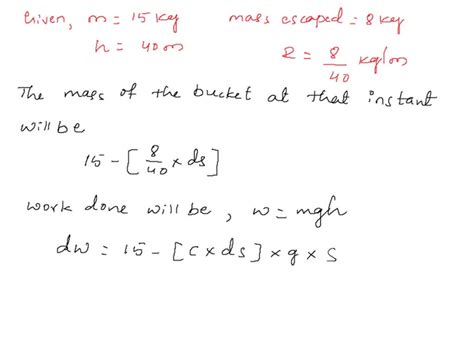 Given, m = 15 kg mass escaped = 8 kg
h = 40 m R = 8/40 kg/m
The mass of the bucket at that instant
will be
15 - [8/40 × ds]
work done will be, w = mgh
dw = 15 - [c × ds] × g × s